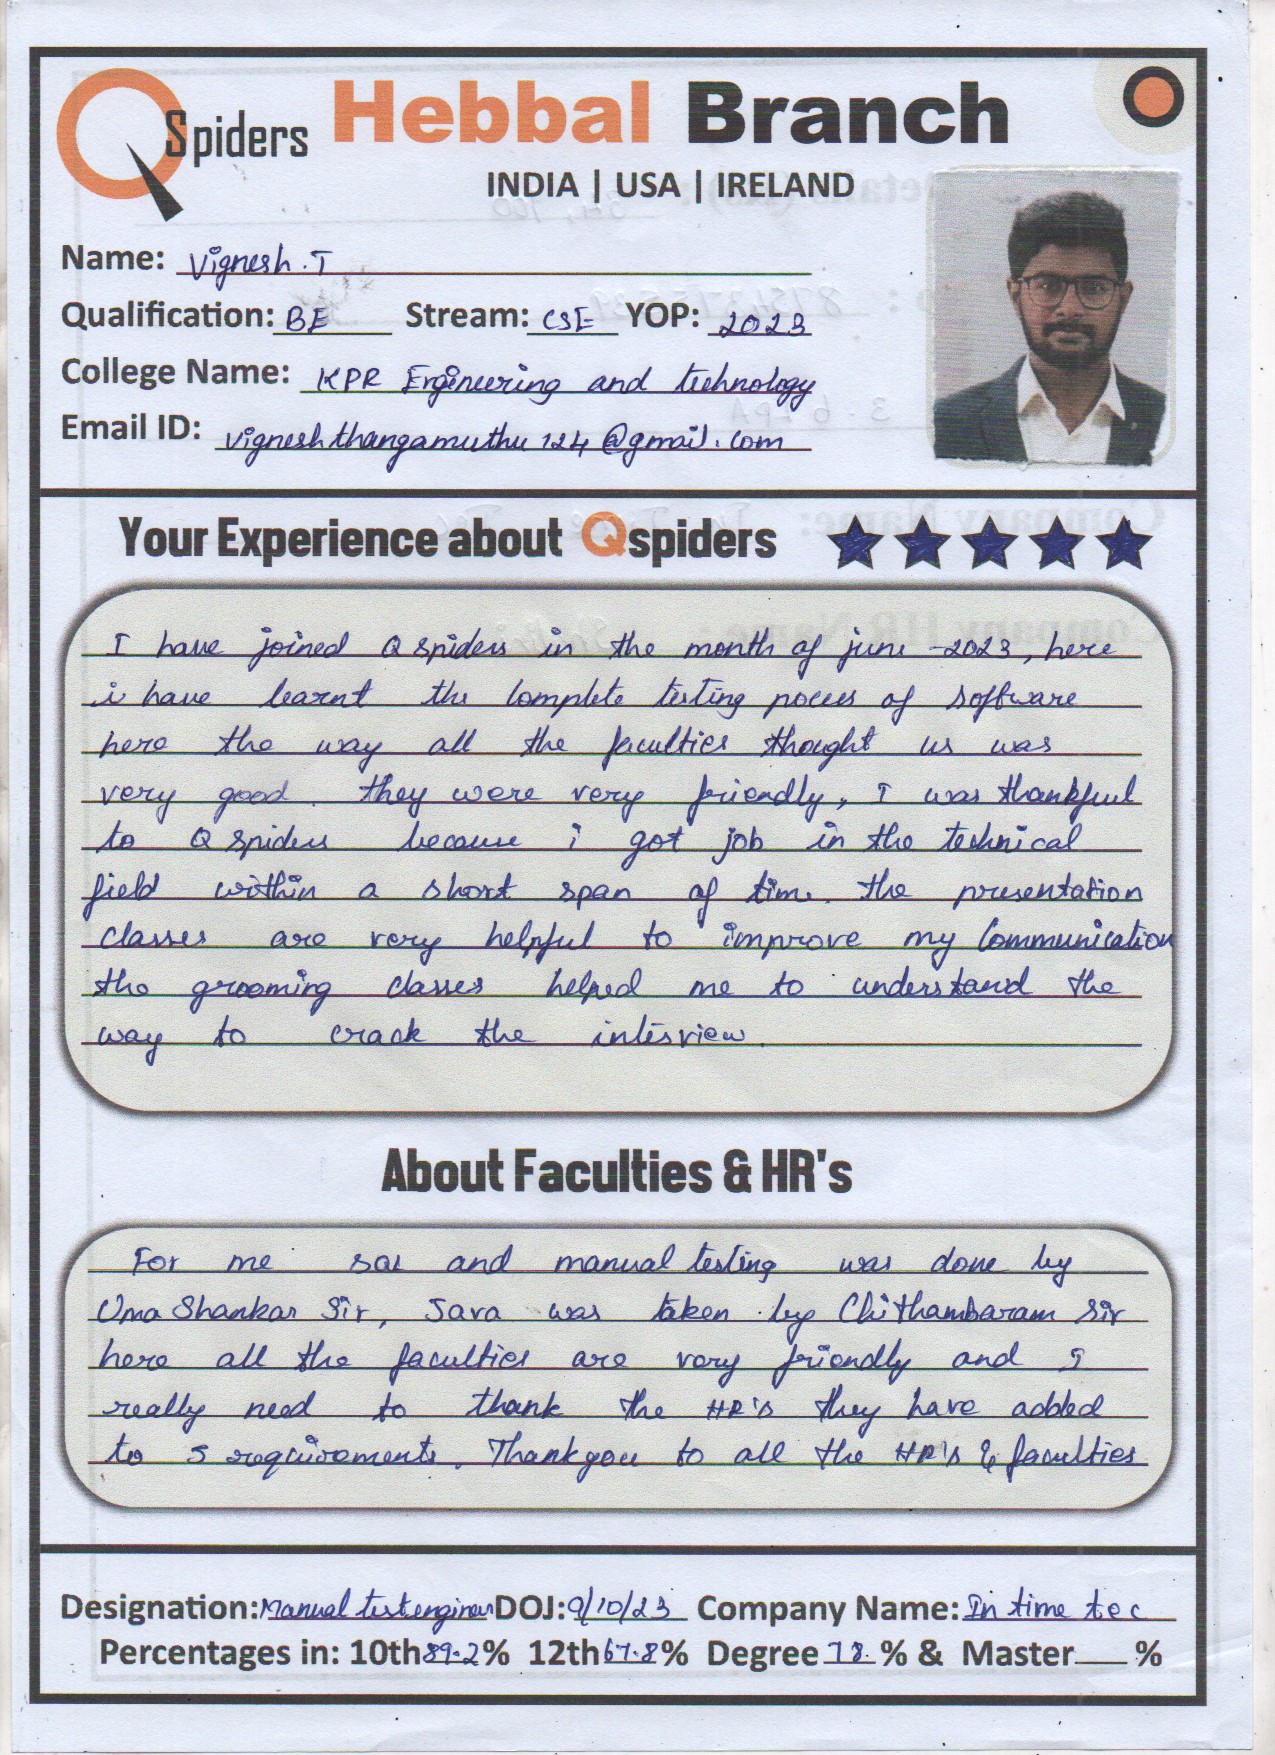 QSpiders Hebbal Branch
INDIA | USA | IRELAND
Name: Vignesh.T
Qualification: BE Stream: CSE YOP: 2023
College Name: KPR Engineering and technology
Email ID: vigneshthangamuthu124@gmail.com
Your Experience about Qspiders
I have joined Q spiders in the month of june -2023, here
i have learnt the complete testing process of software
here the way all the faculties thought us was
very good. they were very friendly, I was thankfuul
to Q spiders because i got job in the technical
field within a short span of time. the presentation
classes are very helpful to improve my Communication
the grooming classes helped me to understand the
way to crack the interview.
About Faculties & HR's
For me sql and manual testing was done by
Uma Shankar Sir, Java was taken by Chithambaram Sir
here all the faculties are very friendly and I
really need to thank the HR's they have added
to 5 requirements. Thankyou to all the HR's & faculties
Designation: Manual test engineer DOJ: 9/10/23 Company Name: In time tec
Percentages in: 10th 89.2% 12th 67.8% Degree 78.% & Master %